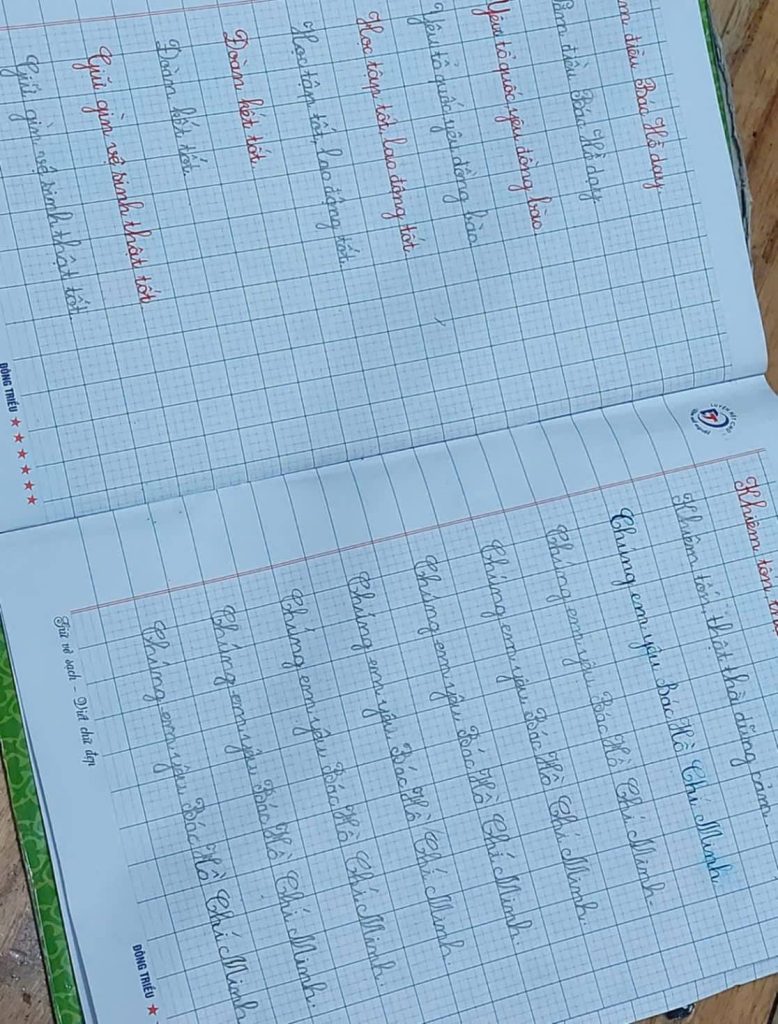 điều Bác Hồ dạy
điều Bác Hồ dạy
Yêu tổ quốc yêu đồng bào.
Yêu tổ quốc yêu đồng bào
Học tập tốt, lao động tốt
Học tập tốt, lao động tốt.
Đoàn kết tốt
Đoàn kết tốt.
Giữ gìn vệ sinh thật tốt
Giữ gìn vệ sinh thật tốt.
ĐÔNG TRIỀU
Khiêm tốn
Khiêm tốn, thật thà dũng cảm.
Chúng em yêu Bác Hồ Chí Minh
Chúng em yêu Bác Hồ Chí Minh.
Chúng em yêu Bác Hồ Chí Minh.
Chúng em yêu Bác Hồ Chí Minh.
Chúng em yêu Bác Hồ Chí Minh
Chúng em yêu Bác Hồ Chí Minh.
Chúng em yêu Bác Hồ Chí Minh.
Chúng em yêu Bác Hồ Chí Minh
Giữ vở sạch - Viết chữ đẹp
ĐÔNG TRIỀU